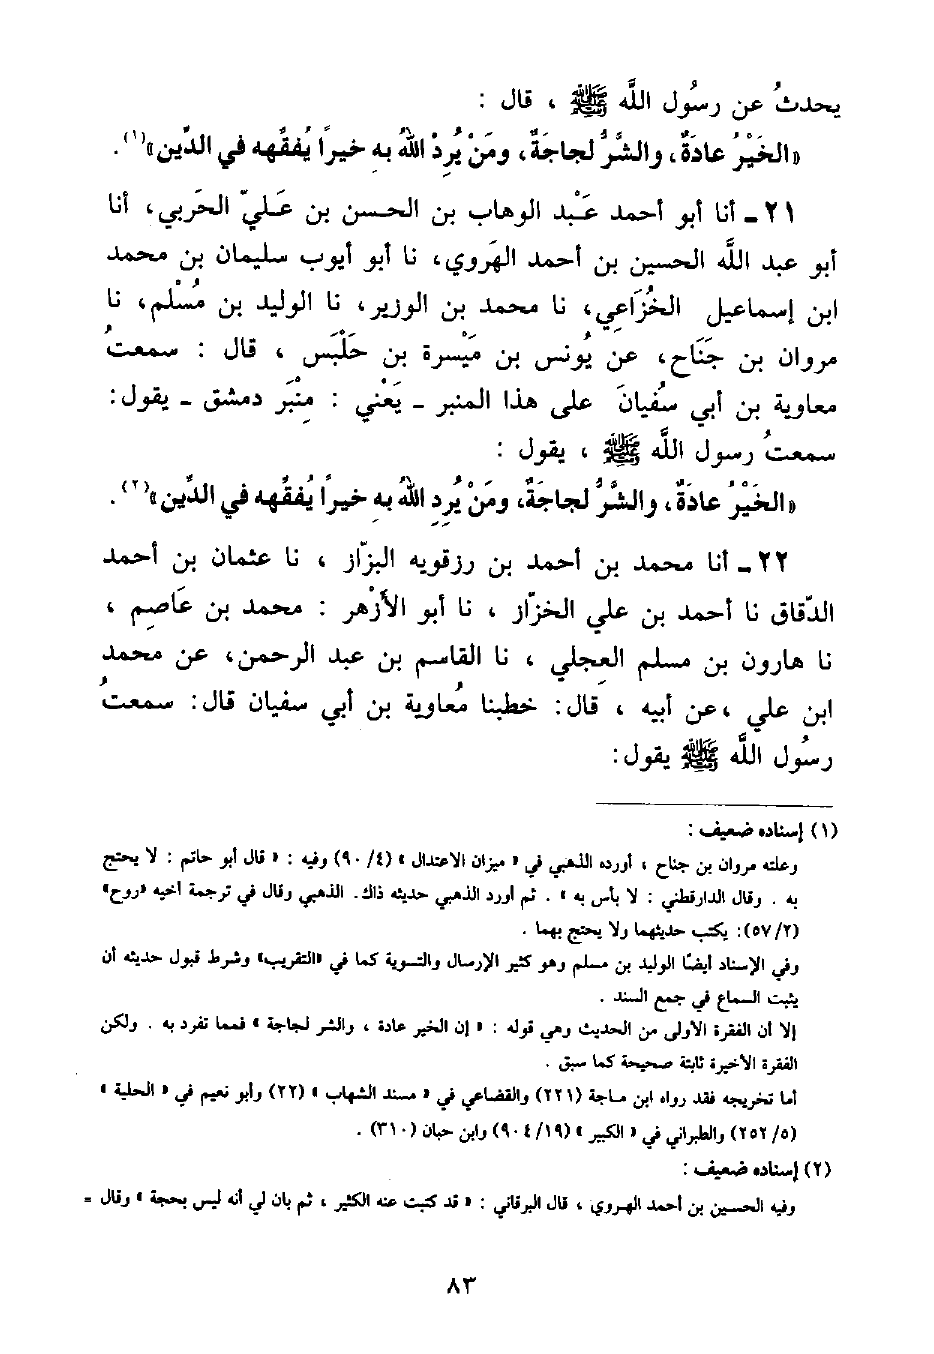 يحدثُ عن رسُول اللَّه ﷺ ، قال :
«الخَيْرُ عادَةٌ، والشَّرُّ لجاجَةٌ، ومَنْ يُرِدْ اللهُ بِه خيراً يُفقِّهه في الدِّين»(١).
٢١ - أنا أبو أحمد عَبْد الوهاب بن الحسن بن عَليّ الحَربي، أنا
أبو عبد اللَّه الحسين بن أحمد الهَروي، نا أبو أيوب سليمان بن محمد
ابن إسماعيل الخُزَاعِي، نا محمد بن الوزير، نا الوليد بن مُسْلم، نا
مروان بن جَنَاح، عن يُونس بن مَيْسرة بن حَلْبَس ، قال : سمعتُ
معاوية بن أبي سُفيانَ على هذا المنبر - يَعْني : مِنْبَر دمشق - يقول:
سمعتُ رسول اللَّه ﷺ ، يقول :
«الخَيْرُ عادَةٌ، والشَّرُّ لجاجَةٌ، ومَنْ يُرِدِ اللهُ بِه خيراً يُفقِّهه في الدِّين»(٢).
٢٢ - أنا محمد بن أحمد بن رزقويه البزّاز ، نا عثمان بن أحمد
الدّقاق نا أحمد بن علي الخزّاز ، نا أبو الأزْهر : محمد بن عَاصِم ،
نا هارون بن مسلم العِجلي ، نا القاسم بن عبد الرحمن، عن محمد
ابن علي ،عن أبيه ، قال: خطبنا مُعاوية بن أبي سفيان قال: سمعتُ
رسُول اللَّه ﷺ يقول:
(١) إسناده ضعيف :
وعلته مروان بن جناح ، أورده الذهبي في « ميزان الاعتدال » (٤/ ٩٠) وفيه : « قال أبو حاتم : لا يحتج
به . وقال الدارقطني : لا بأس به » . ثم أورد الذهبي حديثه ذاك. الذهبي وقال في ترجمة أخيه «روح»
(٢/ ٥٧): يكتب حديثهما ولا يحتج بهما .
وفي الإسناد أيضًا الوليد بن مسلم وهو كثير الإرسال والتسوية كما في «التقريب» وشرط قبول حديثه أن
يثبت السماع في جمع السند .
إلا أن الفقرة الأولى من الحديث وهي قوله : « إن الخير عادة ، والشر لجاجة » فمما تفرد به . ولكن
الفقرة الأخيرة ثابتة صحيحة كما سبق .
أما تخريجه فقد رواه ابن ماجة (٢٢١) والقضاعي في « مسند الشهاب » (٢٢) وأبو نعيم في « الحلية »
(٥/ ٢٥٢) والطبراني في « الكبير » (١٩/ ٩٠٤) وابن حبان (٣١٠) .
(٢) إسناده ضعيف :
وفيه الحسين بن أحمد الهروي ، قال البرقاني : « قد كتبت عنه الكثير ، ثم بان لي أنه ليس بحجة » وقال =
٨٣